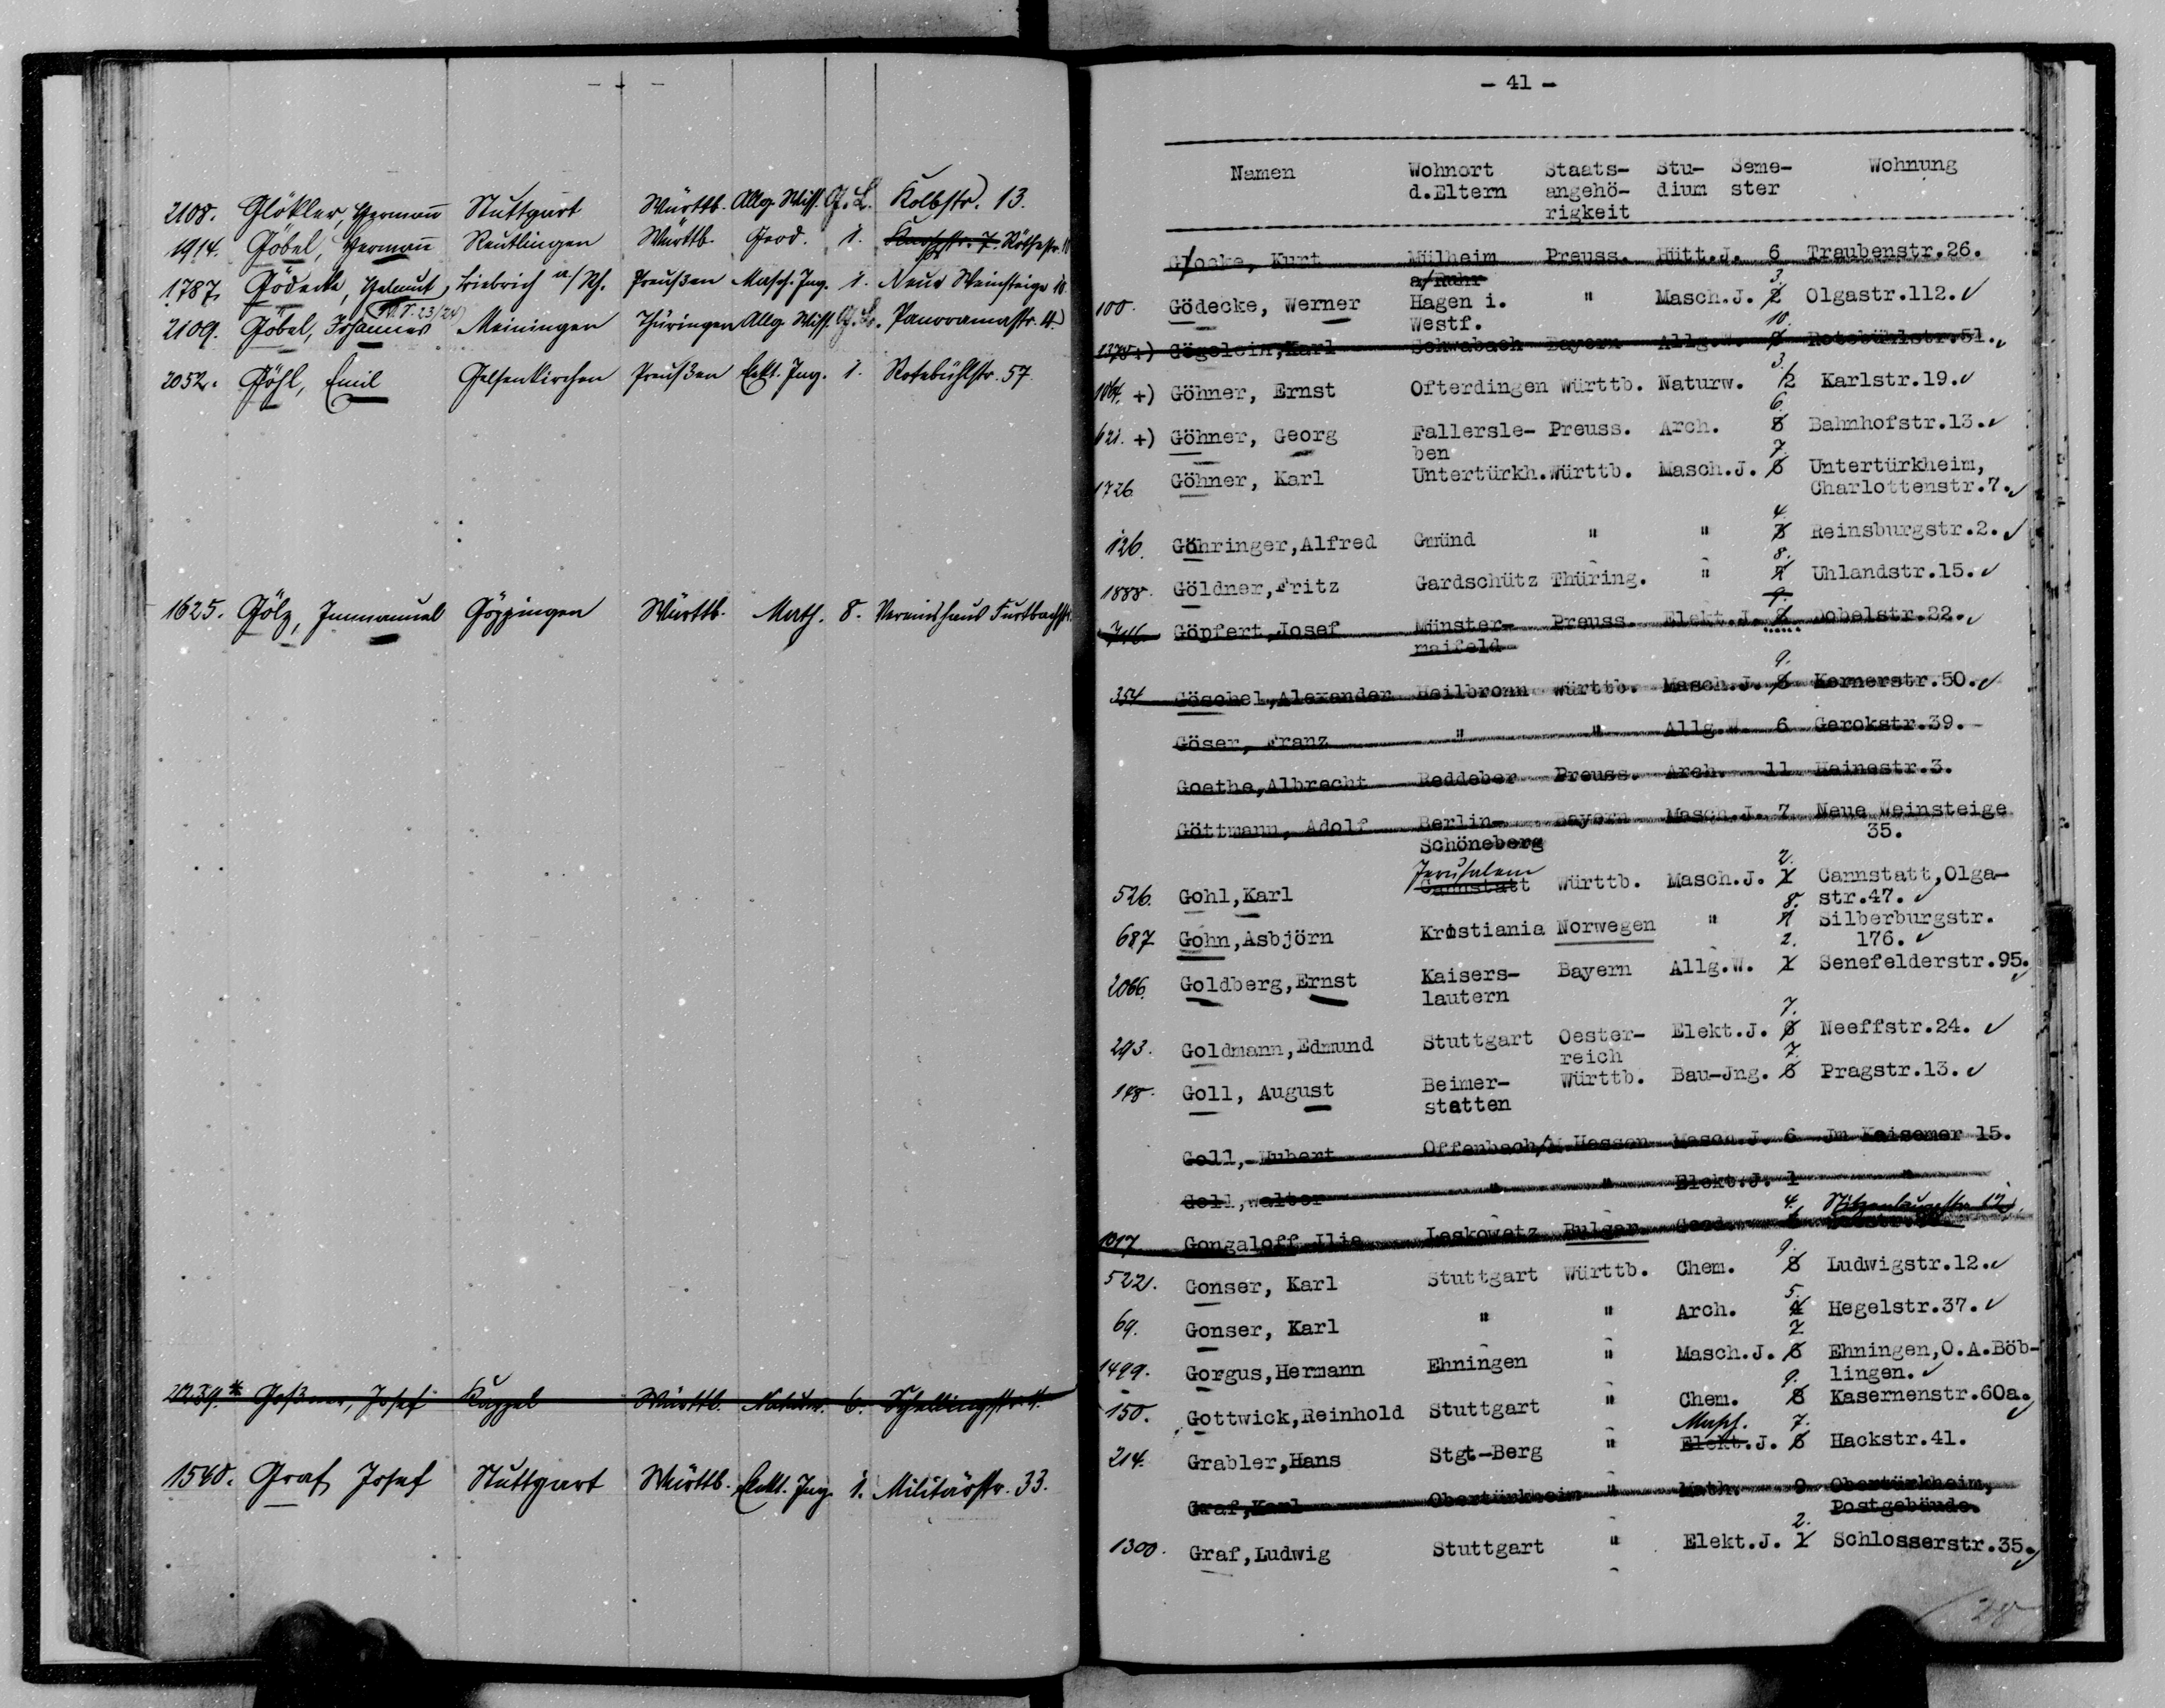 2108. Glökler, Hermann Stuttgart Württb. Allg. Wiss. G.L. Kolbstr. 13.
1914. Göbel, Hermann Reutlingen Württb. Geod. 1. Röthestr.
1787. Gödecke, Helmut, Biebrich a/Rh. Preußen Masch. Ing. 1. Neue Weinsteige 10.
23/24
2109. Göbel, Johannes Meiningen Thüringen Allg. Wiss. Panoramastr. 4.
2052. Göhl, Emil Gelsenkirchen Preußen Elekt. Ing. 1. Rotebühlstr. 57
1625. Gölz, Immanuel Göppingen Württb. Math. 8. Vereinshaus Furtbachstr.
2239.* Goßner, Josef Kappel Württb. Naturw. 6. Schellingstr. 4.
1540. Graf, Josef Stuttgart Württb. Elekt. Ing. 1. Militärstr. 33.
- 41 -
Namen Wohnort Staats- Stu- Seme- Wohnung
d.Eltern angehö- dium ster
rigkeit
Glocke, Kurt Mülheim Preuss. Hütt.J. 6 Traubenstr.26.
a/Ruhr
3.
100. Gödecke, Werner Hagen i. " Masch.J. 2 Olgastr.112.
Westf.
10.
1378 +) Gögelein, Karl Schwabach Bayern Allg.W. Rotebühlstr.51.
3.
1064. +) Göhner, Ernst Ofterdingen Württb. Naturw. 2 Karlstr.19.
6.
621. +) Göhner, Georg Fallersle- Preuss. Arch. 5 Bahnhofstr.13.
ben
7.
1726. Göhner, Karl Untertürkh. Württb. Masch.J. 6 Untertürkheim,
Charlottenstr.7.
4.
126. Göhringer,Alfred Gmünd " " 3 Reinsburgstr.2.
8.
1888. Göldner,Fritz Gardschütz Thüring. " 7 Uhlandstr.15.
9.
716. Göpfert,Josef Münster- Preuss. Elekt.J. 8 Dobelstr.22.
maifeld
9.
354 Göschel,Alexander Heilbronn Württb. Masch.J. 8 Kernerstr.50.
Göser, Franz " " Allg.W. 6 Gerokstr.39.
Goethe,Albrecht Reddeber Preuss. Arch. 11 Heinestr.3.
Göttmann, Adolf Berlin- Bayern Masch.J. 7 Neue Weinsteige
Schöneberg 35.
Jerusalem 2.
526. Gohl,Karl Cannstatt Württb. Masch.J. 1 Cannstatt,Olga-
str.47.
8.
687 Gohn,Asbjörn Kristiania Norwegen " 7 Silberburgstr.
176.
2.
2066. Goldberg,Ernst Kaisers- Bayern Allg.W. 1 Senefelderstr.95.
lautern
7.
293. Goldmann,Edmund Stuttgart Oester- Elekt.J. 6 Neeffstr.24.
reich
7.
148. Goll, August Beimer- Württb. Bau-Jng. 6 Pragstr.13.
stetten
Goll, Hubert Offenbach/M. Hessen Masch.J. 6 Jm Kaisemer 15.
Goll,Walter " " Elekt.J. 1 "
4. Spitzenbergstr. 12.
1017 Gongaloff Ilia Leskowetz Bulgar. Geod.
9.
522. Gonser, Karl Stuttgart Württb. Chem. 8 Ludwigstr.12.
5.
69. Gonser, Karl " " Arch. 4 Hegelstr.37.
7
1499. Gorgus,Hermann Ehningen " Masch.J. 6 Ehningen,O.A.Böb-
lingen.
9.
150. Gottwick,Reinhold Stuttgart " Chem. 8 Kasernenstr.60a.
Masch. 7.
214. Grabler,Hans Stgt-Berg " Elekt.J. 6 Hackstr.41.
Graf,Karl Obertürkheim " Math. 9 Obertürkheim,
Postgebäude.
2.
1300. Graf,Ludwig Stuttgart " Elekt.J. 1 Schlosserstr.35.